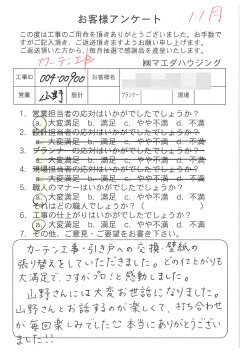 お客様アンケート
1.1月
この度は工事のご用命を頂きありがとうございました。お手数で
すがご記入頂き、ご返送頂きますようお願い申し上げます。
ご返送頂いた方から、毎月抽選で感謝品を進呈いたします。
カーテン工事
㈱マエダハウジング
工事ID 004-00900 お客様名
営業 山野 設計 プランナー 現場
1. 営業担当者の応対はいかがでしたでしょうか?
a. 大変満足 b. 満足 c. やや不満 d. 不満
2. 設計担当者の応対はいかがでしたでしょうか?
a. 大変満足 b. 満足 c. やや不満 d. 不満
3. プランナーの応対はいかがでしたでしょうか?
a. 大変満足 b. 満足 c. やや不満 d. 不満
4. 現場担当者の応対はいかがでしたでしょうか?
a. 大変満足 b. 満足 c. やや不満 d. 不満
5. 職人のマナーはいかがでしたでしょうか?
a. 大変満足 b. 満足 c. やや不満 d. 不満
それはどの職人でしょうか? ( )
6. 工事の仕上がりはいかがでしたでしょうか?
a. 大変満足 b. 満足 c. やや不満 d. 不満
7. その他、ご意見・ご要望をお書き下さい。
カーテン工事・引き戸への交換・壁紙の
張り替えをしていただきました。どの仕上がりも
大満足で、さすがプロ!と感動しました。
山野さんには大変お世話になりました。
山野さんとお話するのが楽しくて、打ち合わせ
が毎回楽しみでした😊本当にありがとうござい
ました!!